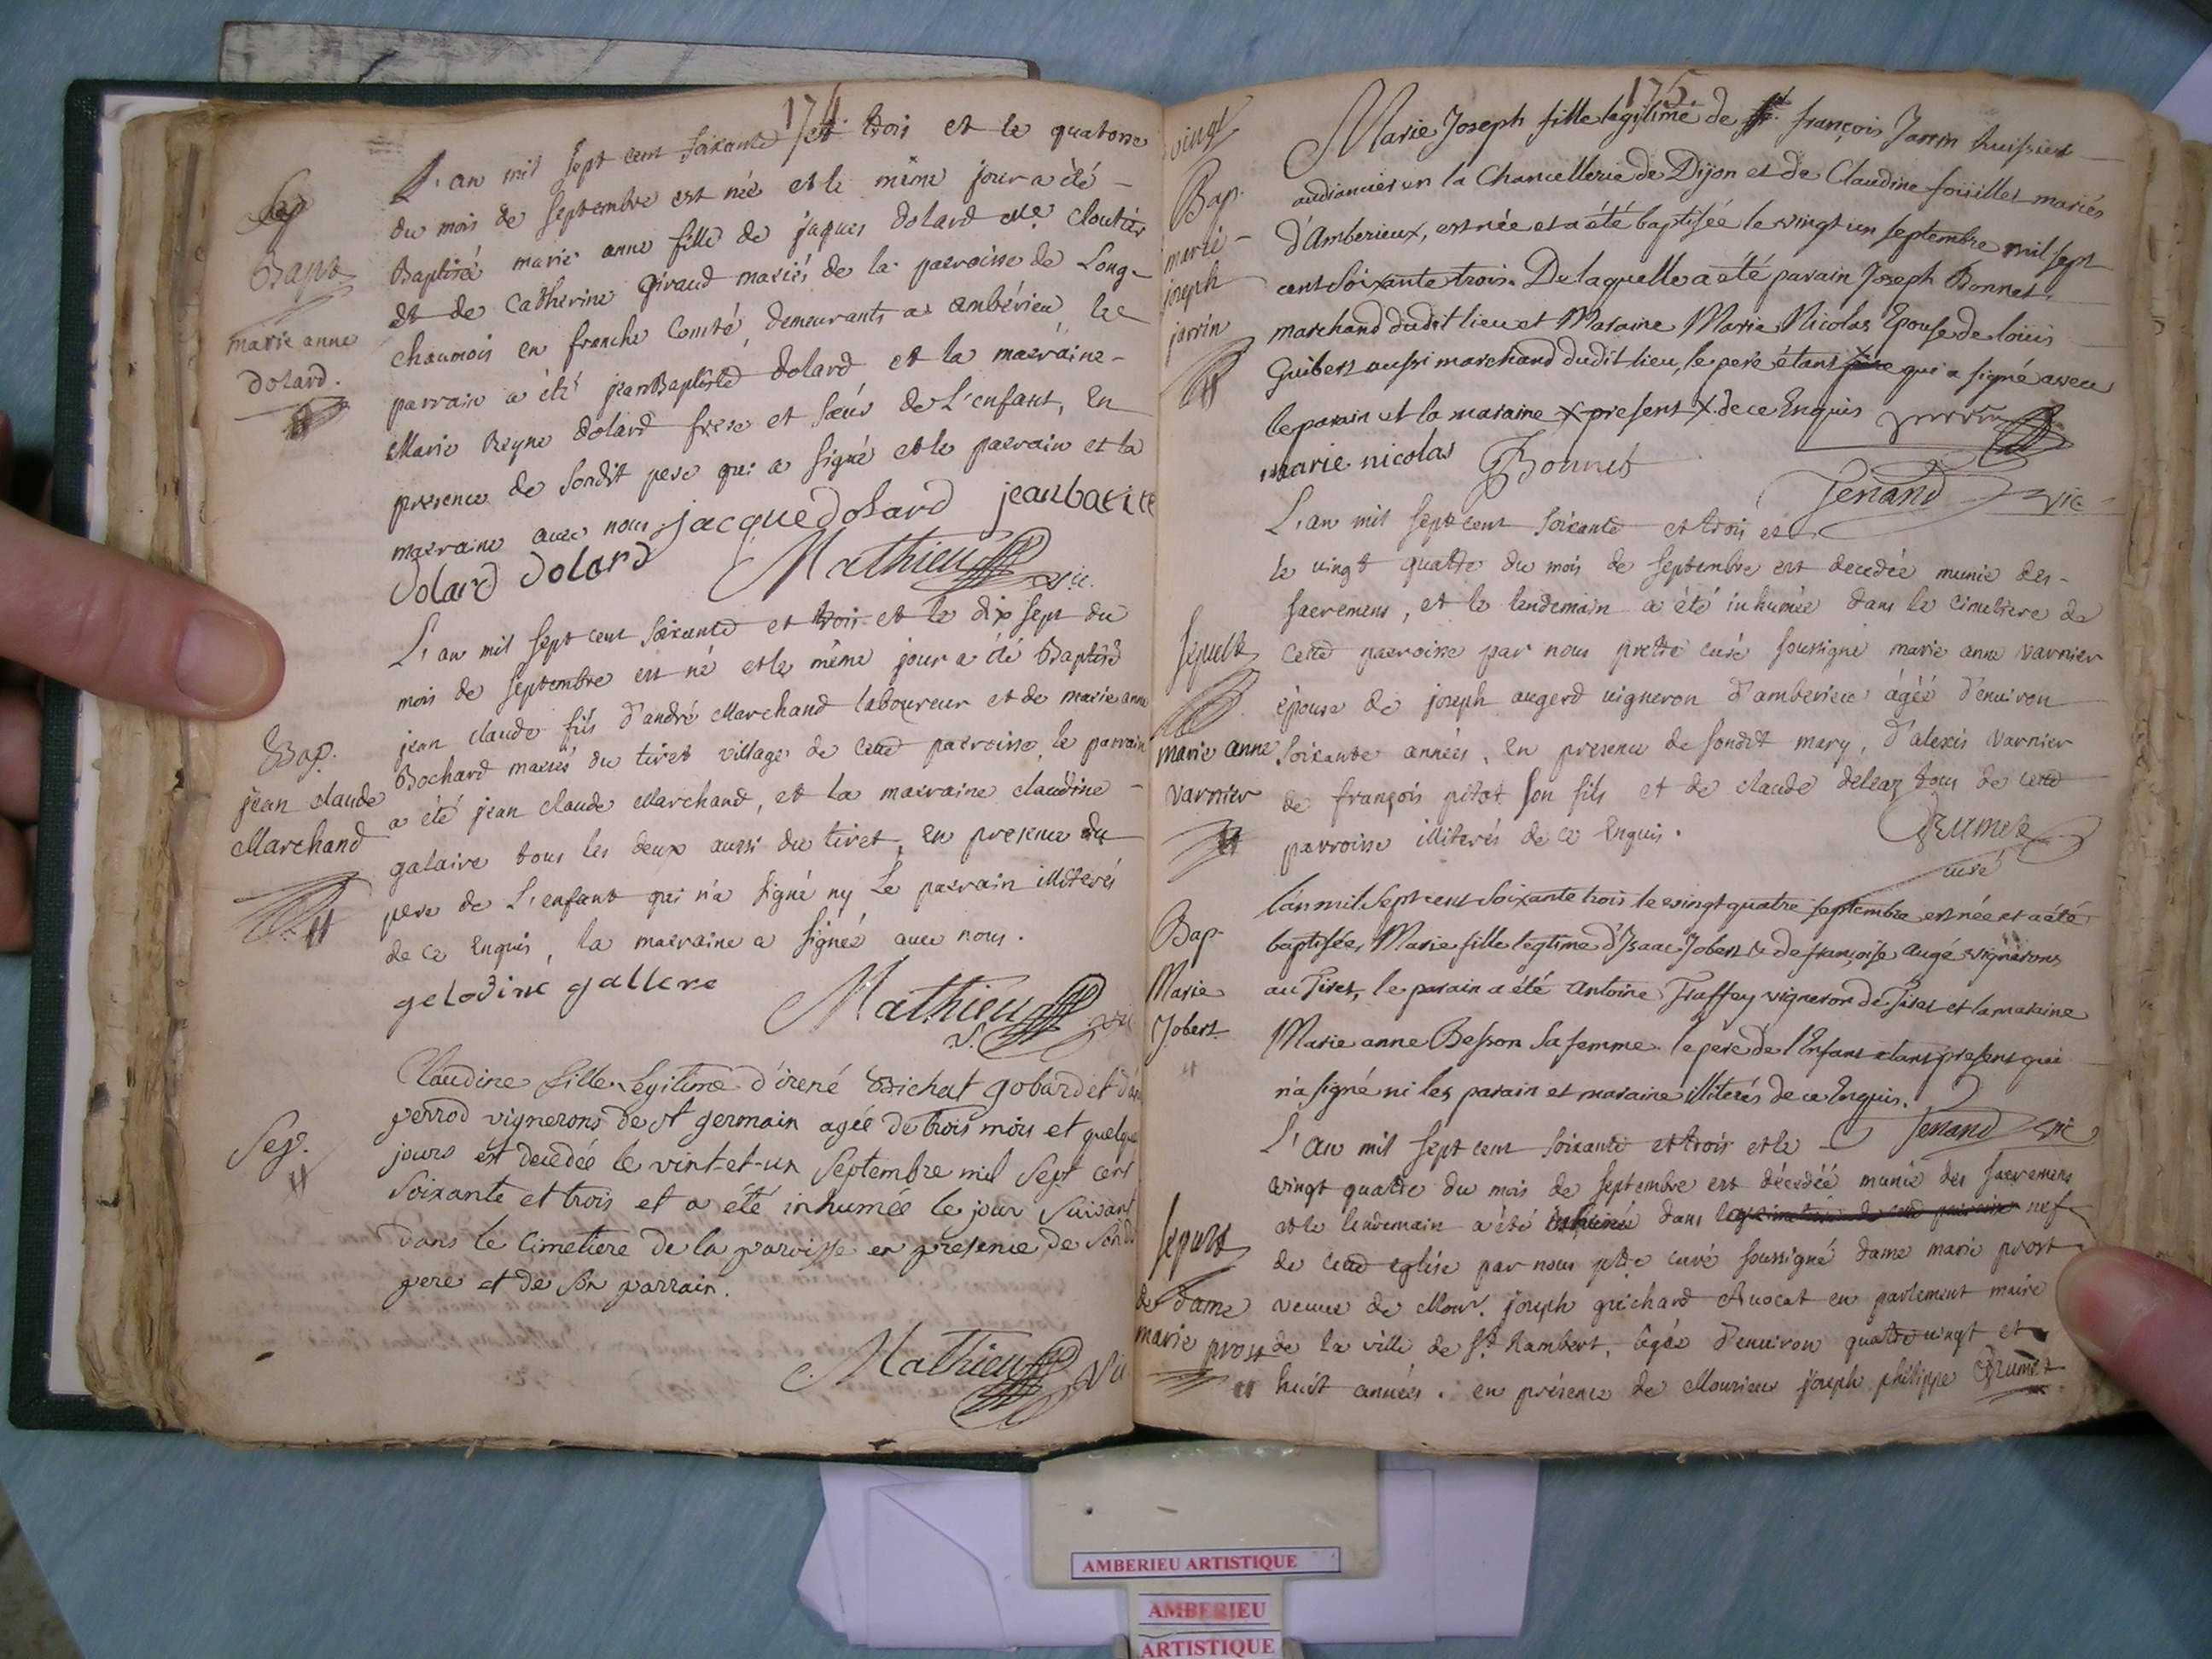 174
L'an mil sept cent soixante et trois et le quatorze
du mois de septembre est née et le même jour a été
Baptisé marie anne fille de jaques dolard me. cloutier
et de Catherine giraud mariés de la parroisse de Long-
chaumois en franche Comté, demeurants a ambérieu le
parrain a été jean Baptiste dolard et la marraine
Marie Reyne dolard frere et sœur de L'enfant, En
presence de sondit pere qui a signé et le parrain et la
marraine avec nous. jacque dolard jean batite
dolard dolard Mathieu vic.
Bapt
marie anne
dolard.
L'an mil sept cent soixante et trois et le dix sept du
mois de septembre est né et le même jour a été Baptisé
jean claude fils d'andré Marchand laboureur et de marie anne
Bochard mariés du tiret village de cette parroisse, le parrain
a été jean claude Marchand, et la marraine claudine
galaire tous les deux aussi du tiret, En presence du
pere de L'enfant qui n'a signé ny Le parrain illiterés
de ce Enquis, la marraine a signé avec nous.
gelodine gallere Mathieu vic
Bap.
jean claude
Marchand
Claudine fille Legitime d'irené Bichat gobard et d'
perrod vignerons de st germain agée de trois mois et quelque
jours est decedée le vint-et-un Septembre mil Sept cent
Soixante et trois et a été inhumée le jour Suivant
dans le Cimetiere de la paroisse en presence de Sondi
pere et de Son parrain.
Mathieu vic
Sep.
175
vingt
Bap.
marie
joseph
jarin
Marie Joseph fille legitime de Sr. françois Janin huissier
audiancier en la Chancellerie de Dijon et de Claudine fouilles mariés
d'Amberieux, est née et a été baptisée le vingt un septembre mil sept
cent soixante trois. De laquelle a été parain Joseph Bonnet,
marchand dudit lieu et Maraine Marie Nicolas Epouse de louis
Guibert aussi marchand dudit lieu, le pere étant x qui a signé avec
le parain et la maraine x present x. de ce Enquis
marie nicolas JBonnet Tenand vic
L'an mil sept cent soixante et trois et
le vingt quatre du mois de septembre est decedée munie des
sacremens, et le lendemain a été inhumée dans le Cimetiere de
cette parroisse par nous prettre curé soussigné marie anne varnier
épouse de joseph augerd vigneron d'amberieu ágéé d'environ
soixante années, En presence de sondit mary, d'alexis varnier
de françois pitot son fils et de claude deleaz tous de cette
parroisse illiterés de ce Enquis. Brumet
curé
sepult
marie anne
varnier
l'an mil sept cent soixante trois le vingt quatre septembre est née et a été
baptisée, Marie fille legtime d'Isaac Jobert & de françoise Augé vignerons
au Tiret, le parain a été Antoine Truffey vigneron de Tiret et la maraine
Marie anne Besson sa femme. le pere de l'Enfant etant present qui
n'a signé ni les parain et maraine illiterés de ce Enquis.
Tenand vic
Bap.
Marie
Jobert
L'an mil sept cent soixante et trois et le
vingt quatre du mois de septembre est décédéé munie des sacremens
et le lendemain a été inhumée dans le nef
de cette eglise par nous ptre curé soussigné dame marie prost
veuve de Monr. joseph grichard Avocat en parlement maire
de la ville de st. Rambert, ágée d'environ quatre vingt et
huit années. en présence de Monsieur joseph philippe Brumet
sepult
de dame
marie prost
AMBERIEU ARTISTIQUE
AMBERIEU
ARTISTIQUE